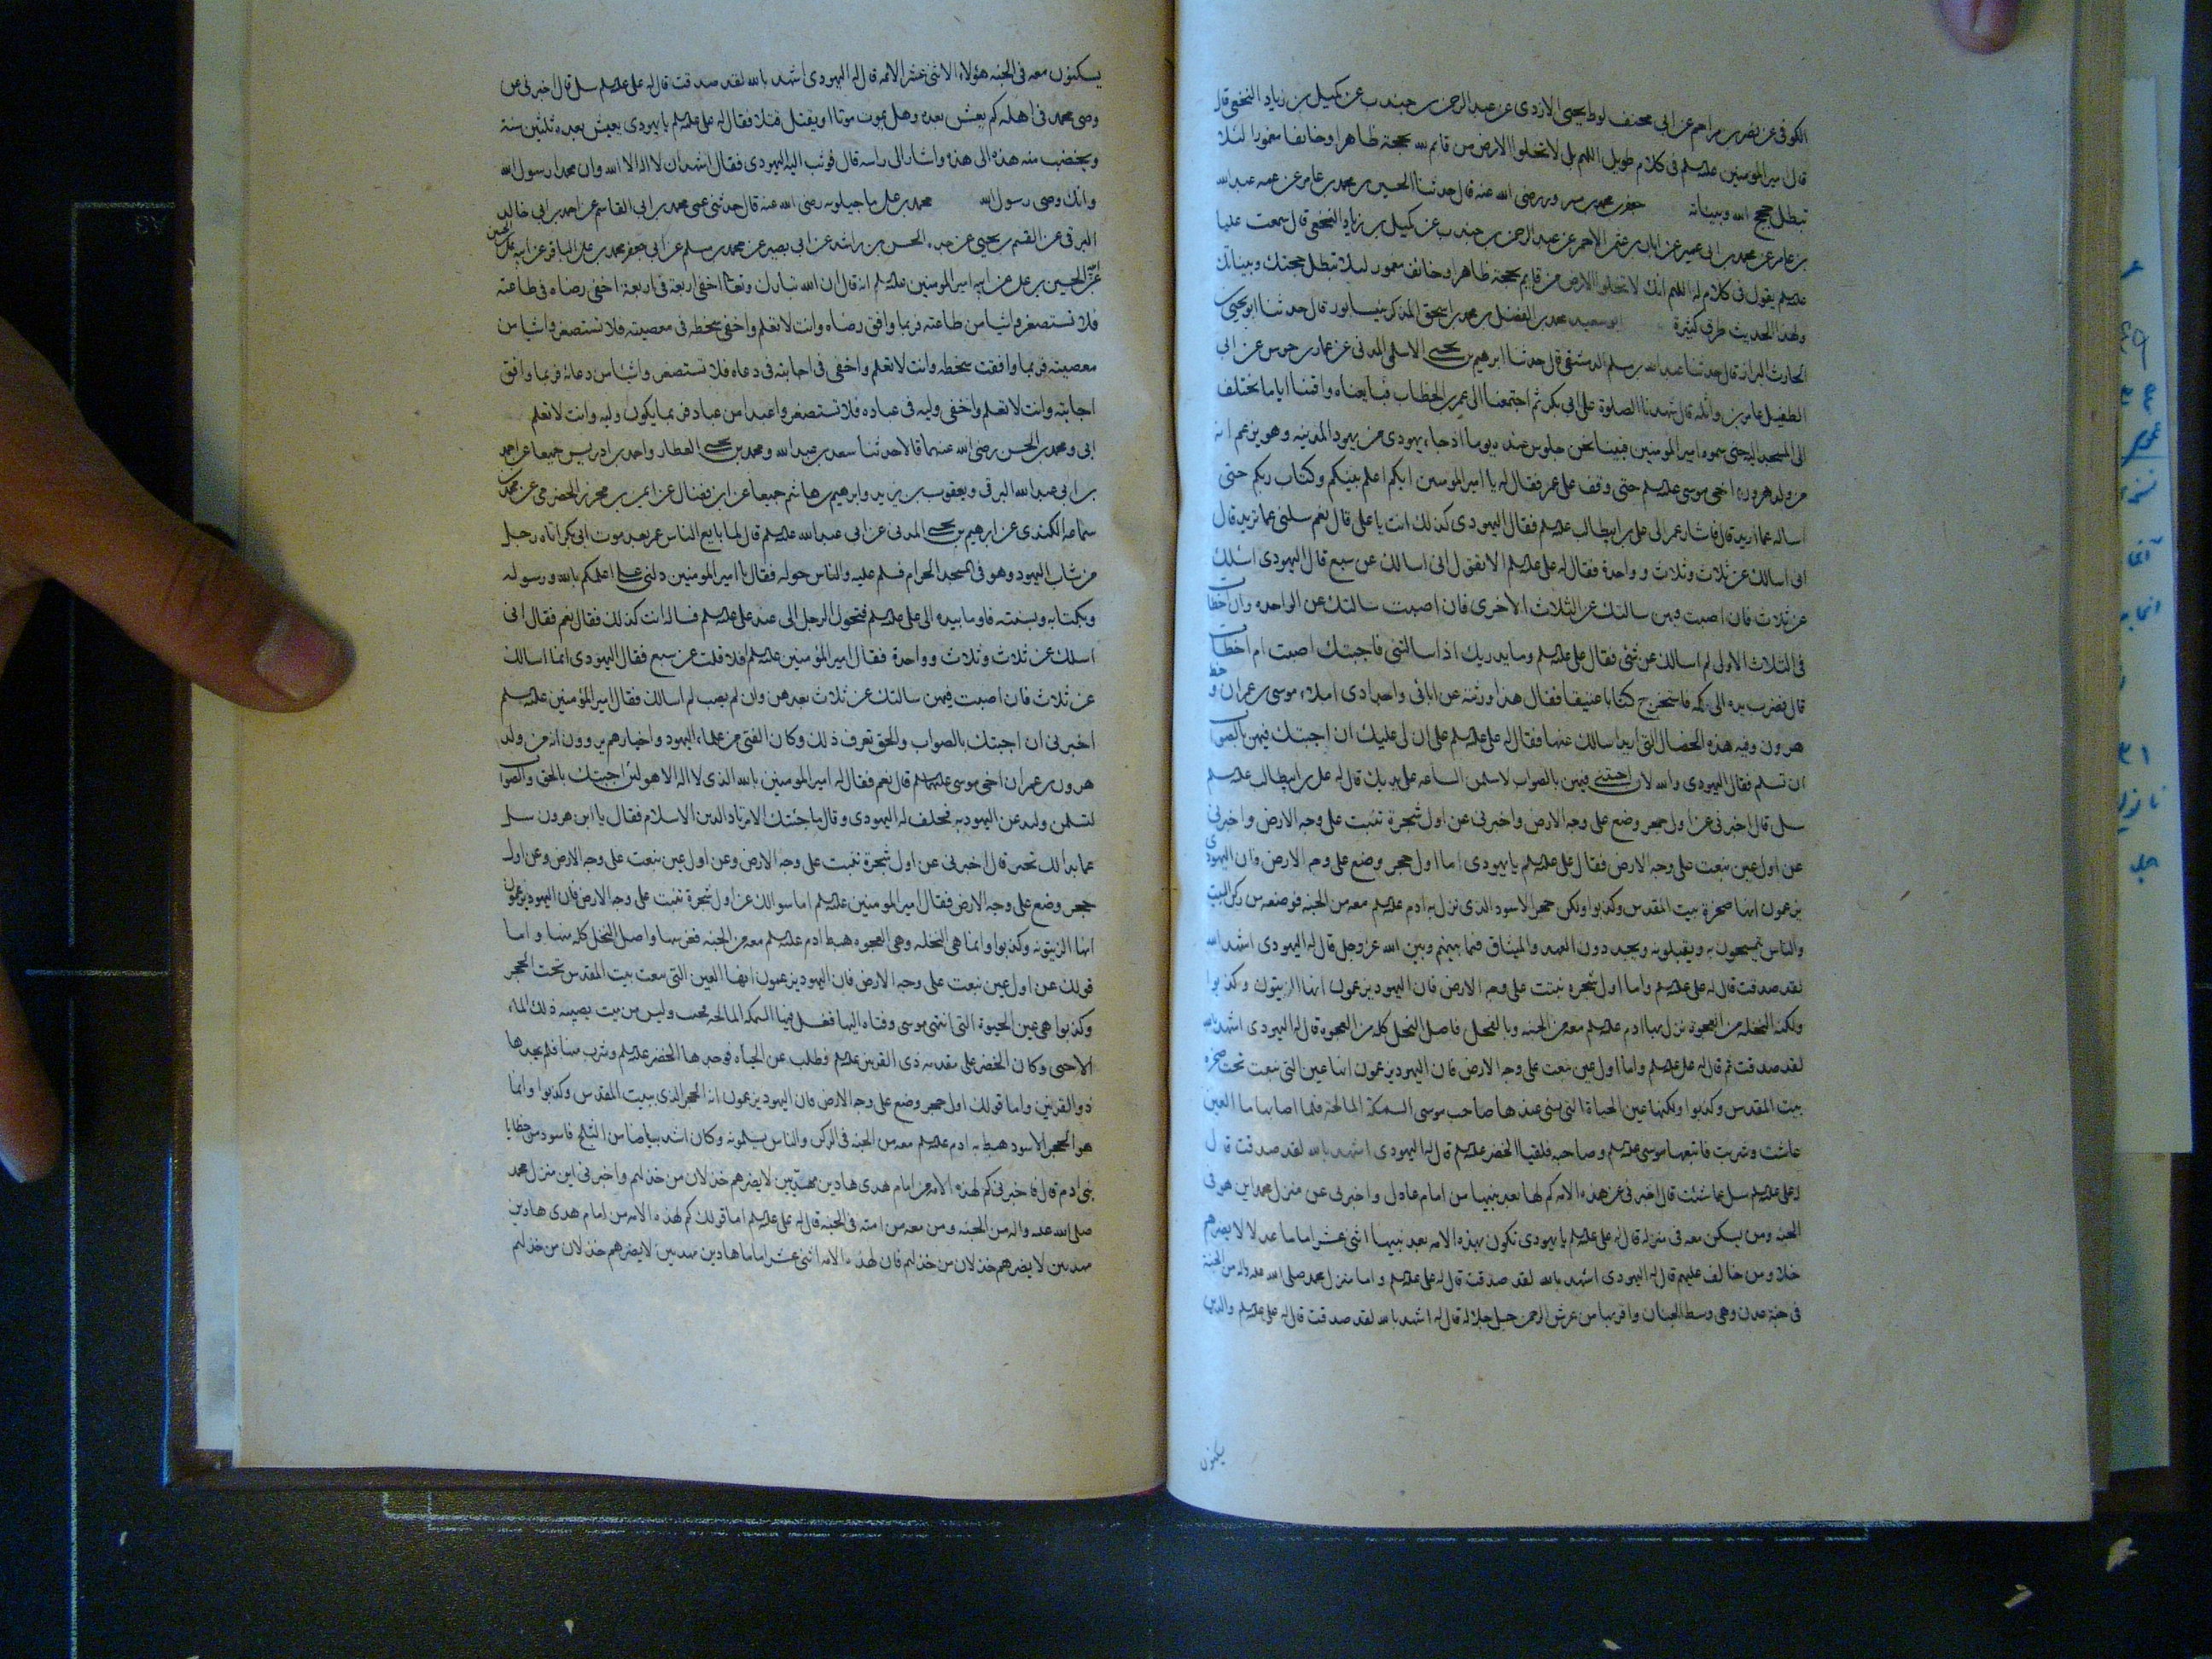 الكوفى عن نصر بن مزاحم عن ابى مخنف لوط بن يحيى الازدى عن عبد الرحمن بن جندب عن كميل بن زياد النخعى قال
قال امير المؤمنين عليه السلم فى كلام طويل اللهم بلى لا تخلوا الارض من قايم لله بحجة ظاهرا وخايفا مغمورا لئلا
تبطل حجج الله وبيناته جعفر بن محمد بن مسرور رضى الله عنه قال حدثنا الحسين بن محمد بن عامر عن عمه عبد الله
بن عامر عن محمد بن ابى عمير عن ابان بن عثمن الاحمر عن عبد الرحمن بن جندب عن كميل بن زياد النخعى قال سمعت عليا
عليه السلم يقول فى كلام له اللهم انك لا تخلوا الارض من قايم بحجة ظاهرا وخايف مغمور لئلا تبطل حججك وبيناتك
ولهذا الحديث طرق كثيرة ابو سعيد محمد بن الفضل بن محمد بن اسحق المذكر بنيسابور قال حدثنا ابو يحيى بن
الحارث البزاز قال حدثنا عبد الله بن مسلم الدمشقى قال حدثنا ابرهيم بن يحيى الاسلمى المدنى عن عمار بن جوين عن ابى
الطفيل عامر بن واثلة قال شهدنا الصلوة على ابى بكر ثم اجتمعنا الى عمر بن الخطاب فبايعناه واقمنا اياما نختلف
الى المسجد اليه حتى سموه امير المؤمنين فبينا نحن جلوس عنده يوما اذ جاء يهودى من يهود المدينه وهو يزعم انه
من ولد هرون اخى موسى عليه السلم حتى وقف على عمر فقال له يا امير المؤمنين ايكم اعلم بنبيكم وكتاب ربكم حتى
اساله عما اريد قال فاشار عمر الى على بن ابيطالب عليه السلم فقال اليهودى كذلك انت يا على قال نعم سلنى عما تريد قال
انى اسالك عن ثلاث وثلاث وواحدة فقال له على عليه السلم الا تقول انى اسالك عن سبع قال اليهودى اسلك
عن ثلاث فان اصبت فيهن سالتك عن الثلاث الاخرى فان اصبت سالتك عن الواحده وان اخطات
فى الثلاث الاولى لم اسالك عن شئ فقال على عليه السلم وما يدريك اذا سالتنى فاجبتك اصبت ام اخطات
قال فضرب بيده الى كمه فاستخرج كتابا عتيقا فقال هذا ورثته عن ابائى واجدادى املاء موسى بن عمران وخط
هرون وفيه هذه الخصال التى اريد اسالك عنها فقال له على عليه السلم على ان لى عليك ان اجبتك فيهن بالصواب
ان تسلم فقال اليهودى والله لان اجبتنى فيهن بالصواب لاسلمن الساعه على يديك قال له على بن ابيطالب عليه السلم
سل قال اخبرنى عن اول حجر وضع على وجه الارض واخبرنى عن اول شجرة نبتت على وجه الارض واخبرنى
عن اول عين نبعت على وجه الارض فقال على عليه السلم يا يهودى اما اول حجر وضع على وجه الارض فان اليهود
يزعمون انها صخرة بيت المقدس وكذبوا ولكن حجر الاسود الذى نزل به ادم عليه السلم معه من الجنه فوضعه من ركن البيت
والناس يتمسحون به ويقبلونه ويجددون العهد والميثاق فيما بينهم وبين الله عز وجل قال له اليهودى اشهد بالله
لقد صدقت قال له على عليه السلم واما اول شجره نبتت على وجه الارض فان اليهود يزعمون انها الزيتون وكذبوا
ولكنه النخله من العجوه نزل بها ادم عليه السلم معه من الجنه وبالفحل فاصل النخل كله من العجوه قال له اليهودى اشهد بالله
لقد صدقت ثم قال له على عليه السلم واما اول عين نبعت على وجه الارض فان اليهود يزعمون انها عين التى نبعت تحت صخره
بيت المقدس وكذبوا ولكنها عين الحياة التى نسى عندها صاحب موسى السمكة المالحة فلما اصابها ما العين
عاشت وشربت فاتبعها موسى عليه السلم وصاحبه فلقيا الخضر عليه السلم قال له اليهودى اشهد بالله لقد صدقت قال
له على عليه السلم سل عما شئت قال اخبرنى عن هذه الامه كم لها بعد نبيها من امام عادل واخبرنى عن منزل محمد اين هو فى
الجنه ومن يسكن معه فى منزله قال له على عليه السلم يا يهودى تكون بهذه الامه بعد نبيها اثنى عشر اماما عدلا لا يضرهم
خلاف من خالف عليهم قال له اليهودى اشهد بالله لقد صدقت قال له على عليه السلم واما منزل محمد صلى الله عليه واله من الجنة
فى جنة عدن وهى وسط الجنان واقربها من عرش الرحمن جل جلاله قال له اشهد بالله لقد صدقت قال له على عليه السلم والذين
يسكنون
يسكنون معه فى الجنه هؤلاء الاثنى عشر الائمه قال له اليهودى اشهد بالله لقد صدقت قال له على عليه السلم سل قال اخبرنى عن
وصى محمد فى اهله كم يعيش بعده وهل يموت موتا او يقتل قتلا فقال له على عليه السلم يا يهودى يعيش بعده ثلثين سنة
ويخضب منه هذه الى هذه واشار الى راسه قال فوثب اليه اليهودى فقال اشهد ان لا اله الا الله وان محمدا رسول الله
وانك وصى رسول الله محمد بن على ماجيلويه رضى الله عنه قال حدثنى عمى محمد بن ابى القاسم عن احمد بن ابى خالد
البرقى عن القسم بن يحيى عن جده الحسن بن راشد عن ابى بصير عن محمد بن مسلم عن ابى جعفر محمد بن على الباقر عن ابيه على بن الحسين
عن ابيه الحسين بن على عن ابيه امير المؤمنين عليه السلم انه قال ان الله تبارك وتعالى اخفى اربعة فى اربعة اخفى رضاه فى طاعته
فلا تستصغرن شيئا من طاعته فربما وافق رضاه وانت لا تعلم واخفى سخطه فى معصيته فلا تستصغرن شيئا من
معصيته فربما وافقت سخطه وانت لا تعلم واخفى فى اجابته فى دعاه فلا تستصغرن شيئا من دعائه فربما وافق
اجابته وانت لا تعلم واخفى وليه فى عباده فلا تستصغرن عبدا من عباد فربما يكون وليه وانت لا تعلم
ابى ومحمد بن الحسن رضى الله عنهما قالا حدثنا سعد بن عبد الله ومحمد بن يحيى العطار واحمد بن ادريس جميعا عن احمد
بن ابى عبد الله البرقى ويعقوب بن يزيد وابرهيم بن هاشم جميعا عن ابن فضال عن ايمن بن محرز الحضرمى عن محمد بن
سماعه الكندى عن ابرهيم بن يحيى المدنى عن ابى عبد الله عليه السلم قال لما بايع الناس عمر بعد موت ابى بكر اتاه رجل
من شباب اليهود وهو فى المسجد الحرام فسلم عليه والناس حوله فقال يا امير المؤمنين دلنى على اعلمكم بالله ورسوله
وبكتابه وبسنته فاوما بيده الى على عليه السلم فتحول الرجل الى عند على عليه السلم فساله انت كذلك فقال نعم فقال انى
اسلك عن ثلاث وثلاث وواحدة فقال امير المؤمنين عليه السلم افلا قلت عن سبع فقال اليهودى انما اسالك
عن ثلاث فان اصبت فيهن سالتك عن ثلاث بعدهن وان لم يصب لم اسالك فقال امير المؤمنين عليه السلم
اخبرنى ان اجبتك بالصواب والحق تعرف ذلك وكان الفتى من علماء اليهود واحبارهم يروون انه من ولد
هرون بن عمران اخى موسى عليهما السلم قال نعم فقال له امير المؤمنين بالله الذى لا اله الا هو لئن اجبتك بالحق والصواب
لتسلمن ولتدعن اليهوديه فحلف له اليهودى وقال ما جئتك الا مرتاد الدين الاسلام فقال يا ابن هرون سل
عما بدا لك تخبر قال اخبرنى عن اول شجرة نبتت على وجه الارض وعن اول عين نبعت على وجه الارض وعن اول
حجر وضع على وجه الارض فقال امير المؤمنين عليه السلم اما سوالك عن اول شجرة نبتت على وجه الارض فان اليهود يزعمون
انها الزيتونه وكذبوا وانما هى النخله وهى العجوه هبط ادم عليه السلم معه من الجنه فغرسها واصل النخل كله منها واما
قولك عن اول عين نبعت على وجه الارض فان اليهود يزعمون انها العين التى نبعت ببيت المقدس تحت الحجر
وكذبوا هى عين الحيوة التى انتهى موسى وفتاه اليها فغسل فيها السمكه المالحه فحييت وليس من ميت يصيبه ذلك الماء
الا حيى وكان الخضر على مقدمه ذى القرنين عليه السلم فطلب عين الحياه فوجدها الخضر عليه السلم وشرب منها فلم يجدها
ذو القرنين واما قولك اول حجر وضع على وجه الارض فان اليهود يزعمون انه الحجر الذى ببيت المقدس وكذبوا وانما
هو الحجر الاسود هبط به ادم عليه السلم معه من الجنه فى الركن والناس يستلمونه وكان اشد بياضا من الثلج فاسود من خطايا
بنى ادم قال فاخبرنى كم لهذه الامه من امام هدى هادين مهديين لا يضرهم خذلان من خذلهم واخبرنى اين منزل محمد
صلى الله عليه واله من الجنه ومن معه من امته فى الجنه قال له على عليه السلم اما قولك كم لهذه الامه من امام هدى هادين
مهديين لا يضرهم خذلان من خذلهم فان لهذه الامه اثنى عشر اماما هادين مهديين لا يضرهم خذلان من خذلهم